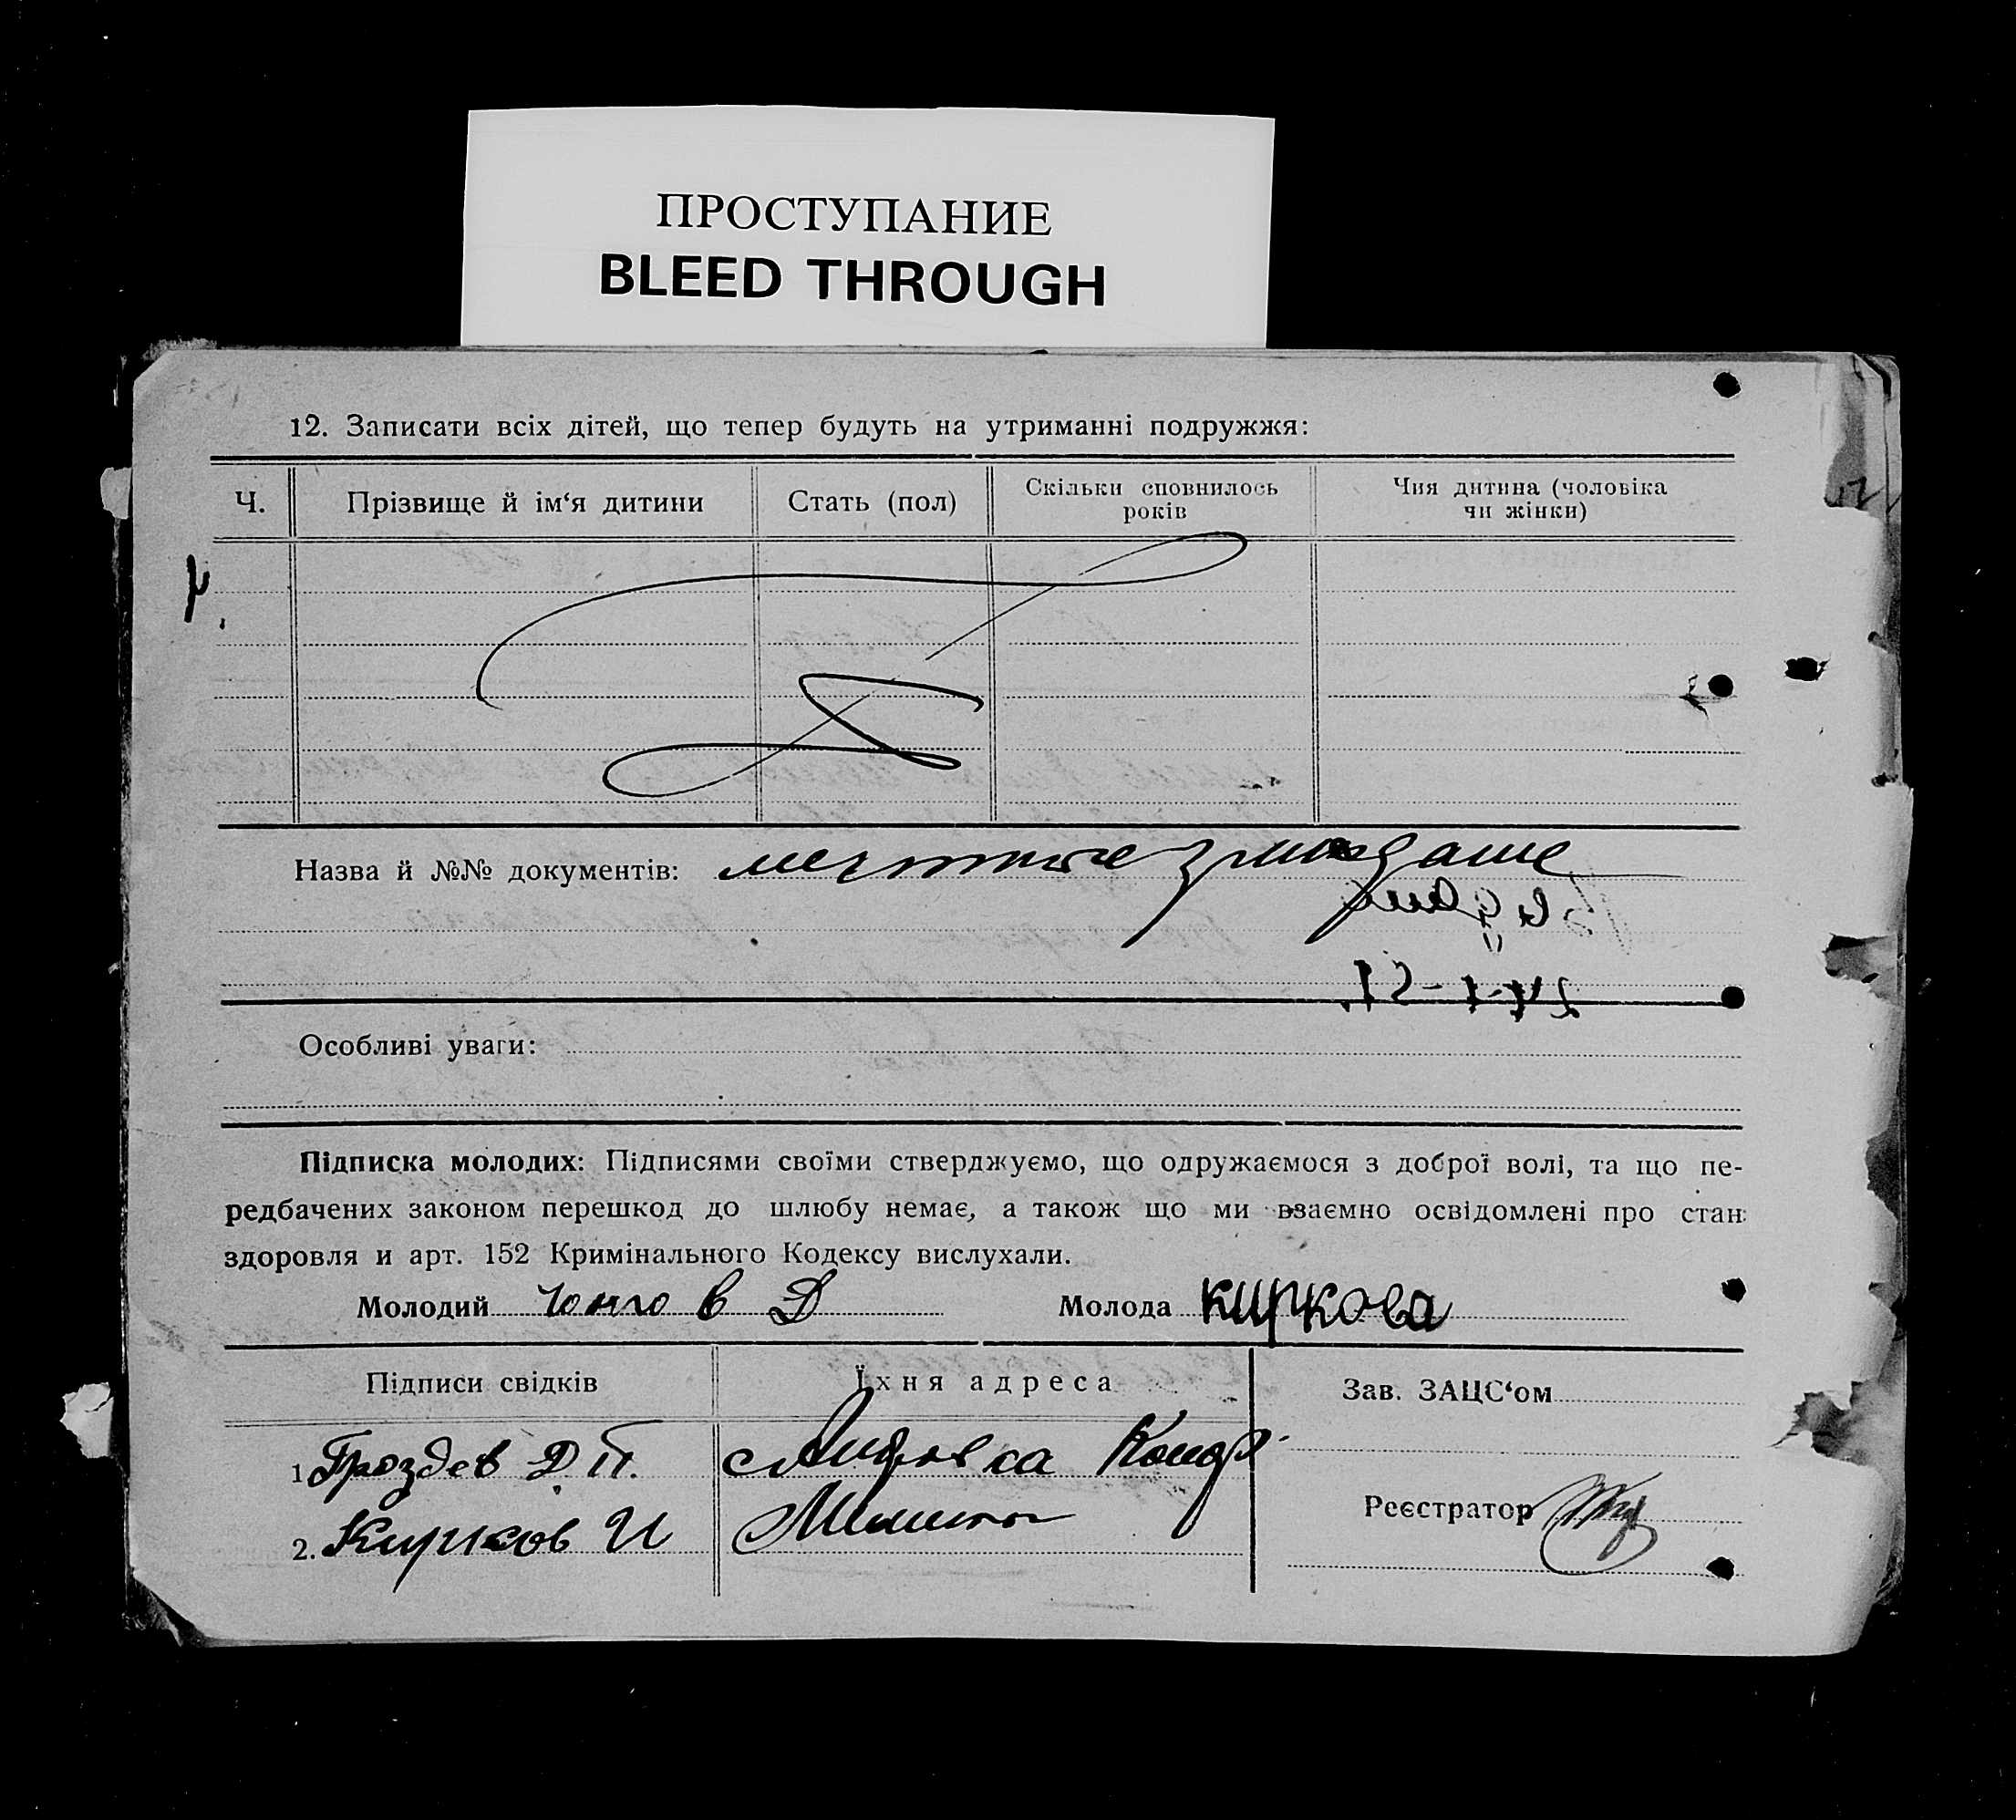 ПРОСТУПАНИЕ
BLEED THROUGH
12. Записати всіх дітей, що тепер будуть на утриманні подружжя:
Ч. Прізвище й ім‘я дитини Стать (пол) Скільки сповнилось років Чия дитина (чоловіка чи жінки)
Назва й №№ документів:
24-1-51.
Особливі уваги:
Підписка молодих: Підписями своїми стверджуємо, що одружаємося з доброї волі, та що пе-
редбачених законом перешкод до шлюбу немає, а також що ми взаємно освідомлені про стан
здоровля и арт. 152 Кримінального Кодексу вислухали.
Молодий Д Молода Киркова
Підписи свідків Їхня адреса Зав. ЗАЦС‘ом
1. Гроздев Д П. с Андровка
Реєстратор
2. Кирков И